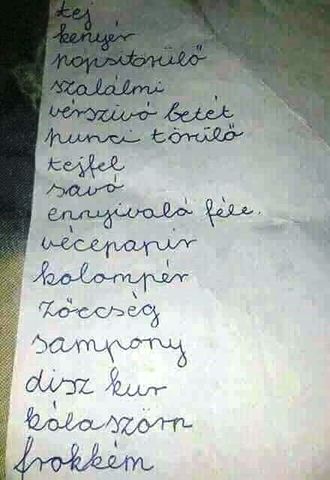 tej
kenyér
popsitörülő
szalálmi
vérszivó betét
punci törülő
tejfel
savó
ennyivaló féle.
vécépapir
kolompér
zöccség
sampony
disz kur
kólaszörp
frokkém